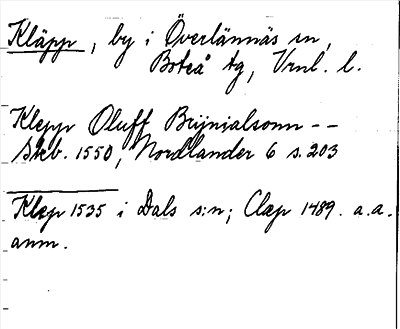 Kläpp, by i Överlännäs sn,
Boteå tg, Vrnl. l.
Klepp Oluff Brijnialsonn --
Skb. 1550, Nordlander 6 s. 203
Klep 1535 i Dals s:n; Clæp 1489. a.a.
anm.